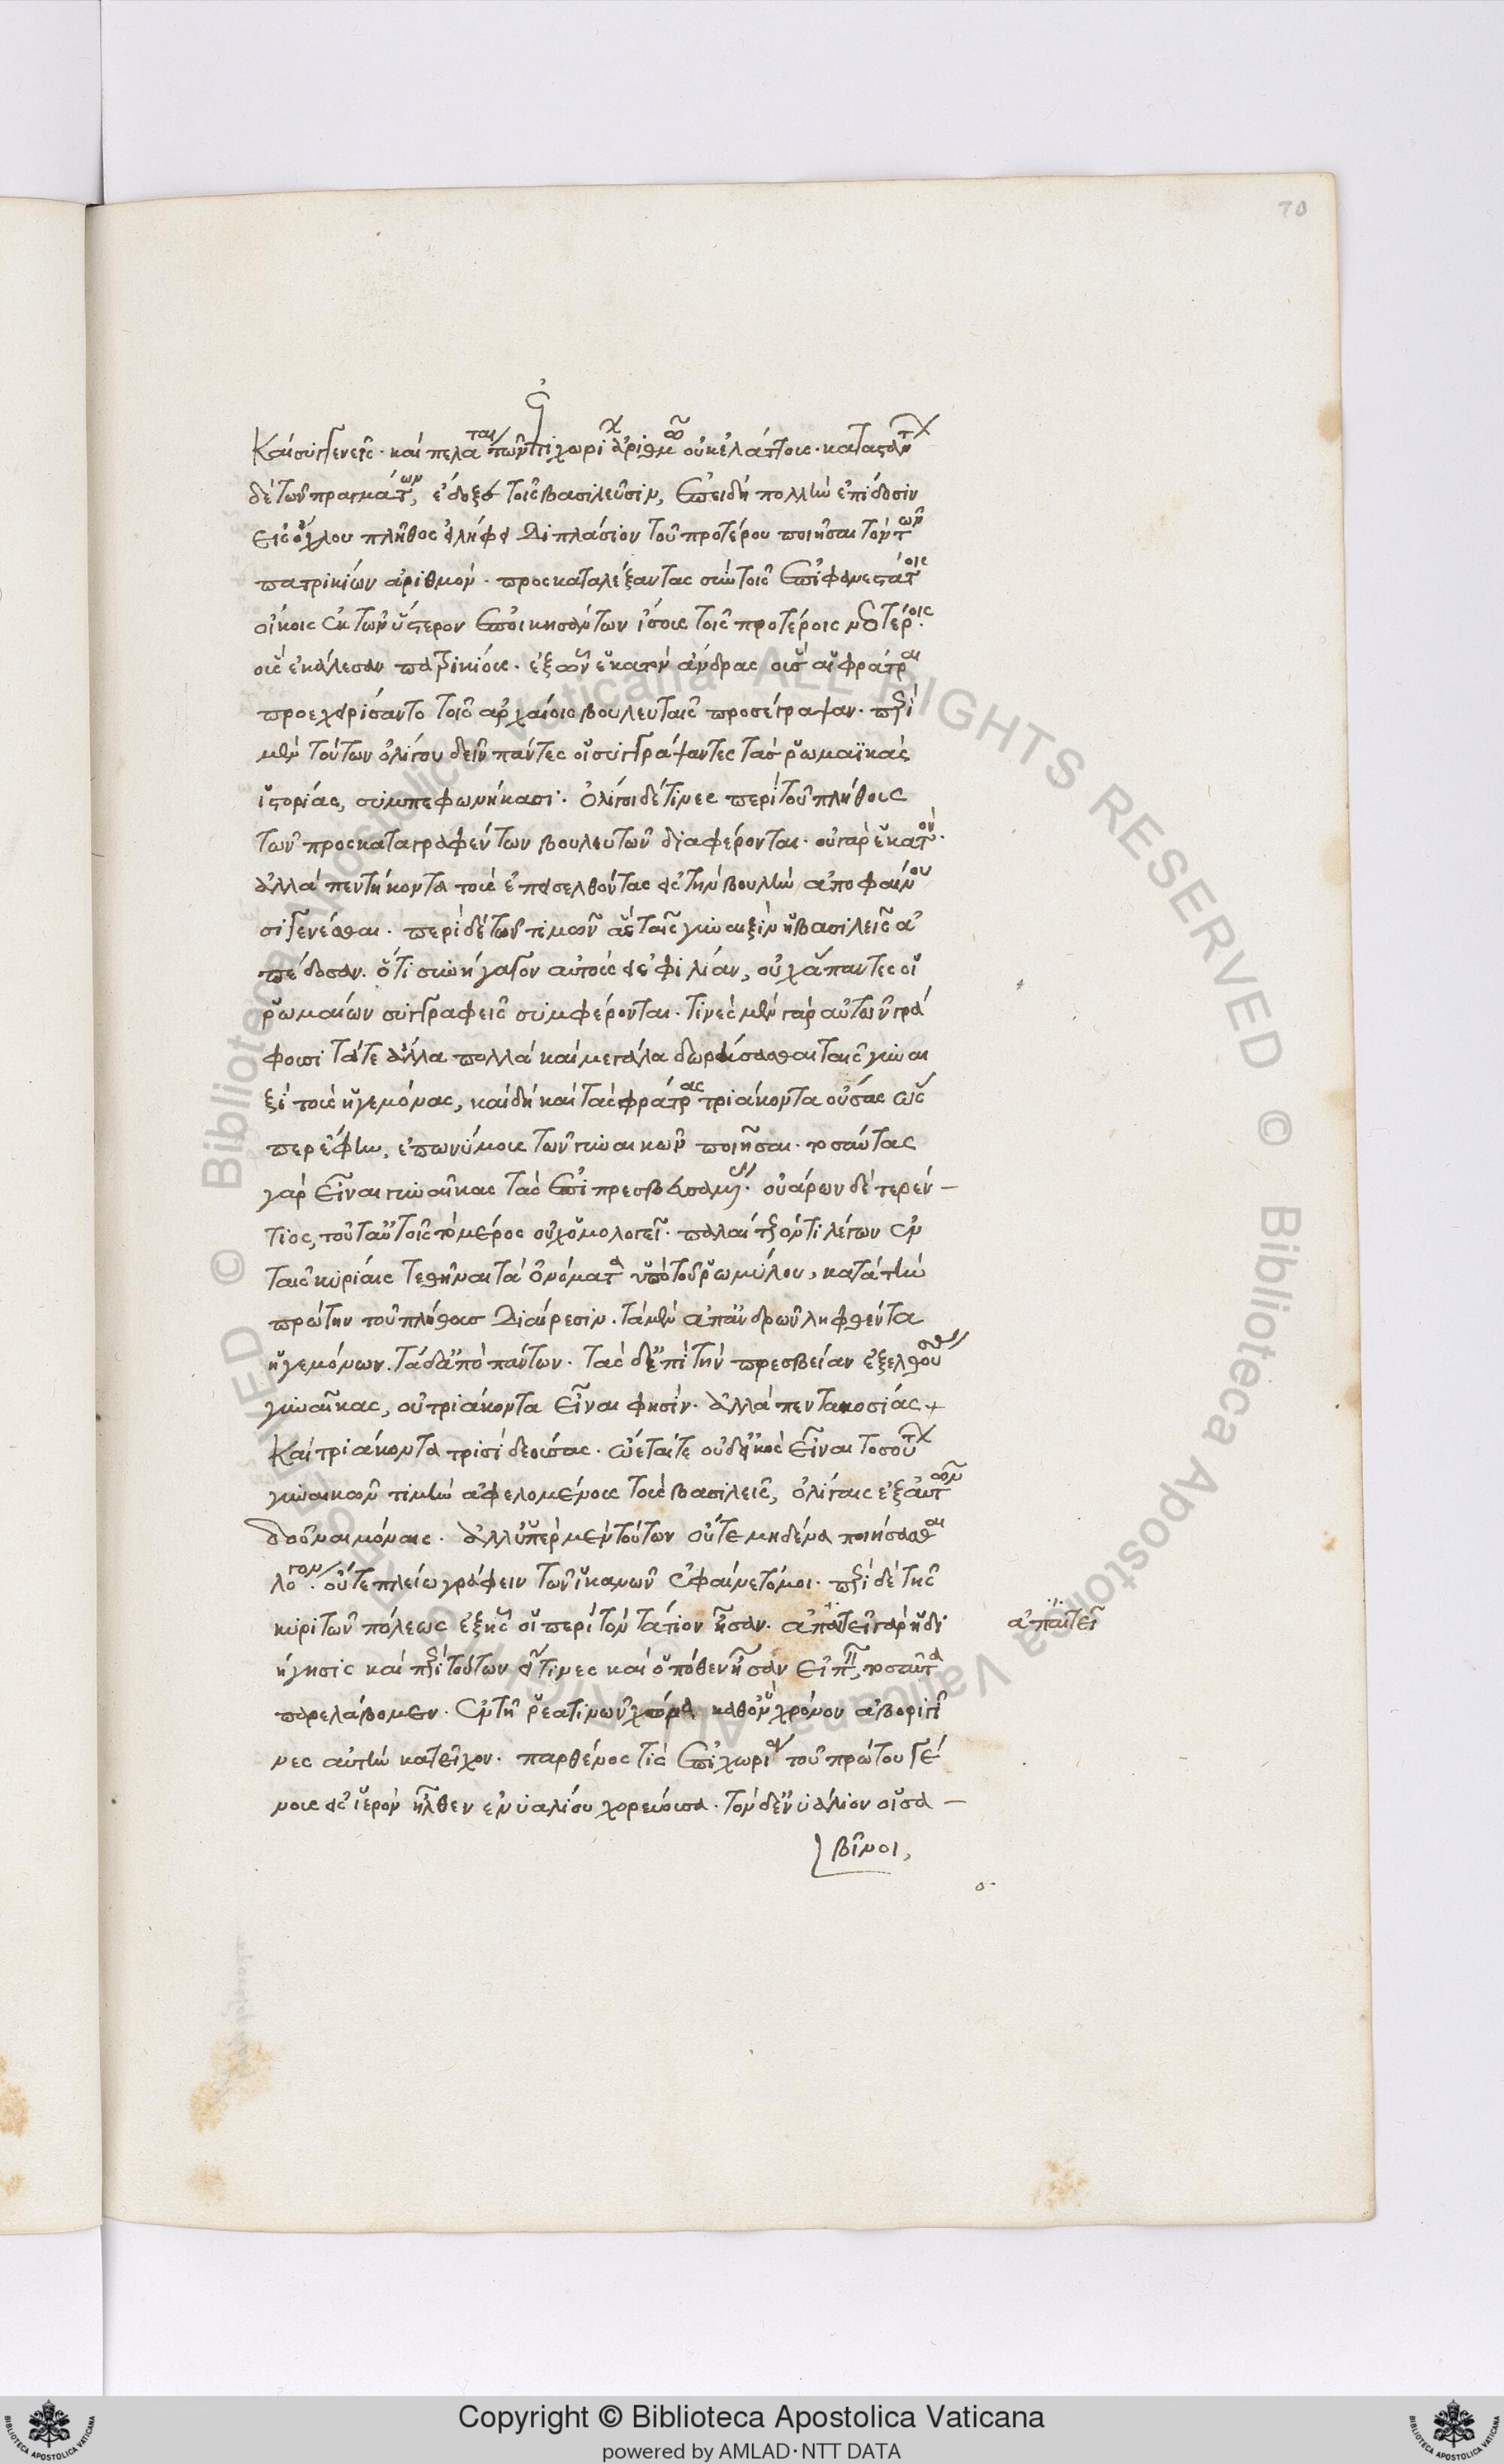 70
καὶ συγγενεῖς· καὶ πελάται τῶν ἐπιχωρίων ἀριθμῶ οὐκ ἐλάττους· καταστάντων
δὲ τῶν πραγμάτων, ἔδοξε τοῖς βασιλεῦσιν, ἐπειδὴ πολλὴν ἐπίδοσιν
εἰς ὄχλου πλῆθος εἰλήφει διπλάσιον τοῦ προτέρου ποιῆσαι τὸν τῶν
πατρικίων ἀριθμόν· προσκαταλέξαντας σὺν τοῖς ἐπιφανεστάτοις
οἴκοις ἐκ τῶν ὕστερον ἐποικησάντων ἴσους τοῖς προτέροις νεωτέροις·
οὓς ἐκάλεσαν πατρικίους· ἐξ ὧν ἑκατὸν ἄνδρας οὓς αἱ φράτραι
προεχειρίσαντο τοῖς ἀρχαίοις βουλευταῖς προσέγραψαν· περὶ
μὲν τούτων ὀλίγου δεῖν πάντες οἱ συγγράψαντες τὰς ῥωμαϊκὰς
ἱστορίας, συμπεφωνήκασι· ὀλίγοι δέ τινες περὶ τοῦ πλήθους
τῶν προσκαταγραφέντων βουλευτῶν διαφέρονται· οὐ γὰρ ἑκατὸν·
ἀλλὰ πεντήκοντα τοὺς ἐπεισελθόντας εἰς τὴν βουλὴν ἀποφαίνου
σι γενέσθαι· περὶ δὲ τῶν τιμῶν ἃς ταῖς γυναιξὶν οἱ βασιλεῖς ἀ
πέδοσαν· ὅτι συνήγαγον αὐτοὺς εἰς φιλίαν, οὐχ ἅπαντες οἱ
ῥωμαίων συγγραφεῖς συμφέρονται· τινὲς μὲν γὰρ αὐτῶν γρά
φουσι τά τε ἄλλα πολλὰ καὶ μεγάλα δωρήσασθαι ταῖς γυναι
ξὶ τοὺς ἡγεμόνας, καὶ δὴ καὶ τὰς φράτρας τριάκοντα οὔσας ὥς
περ ἔφην, ἐπωνύμους τῶν γυναικῶν ποιῆσαι· τοσαύτας
γὰρ εἶναι γυναῖκας τὰς ἐπιπρεσβευσαμένας· οὐάρων δὲ τερέν-
τιος, τοῦτ' αὐτοῖς τὸ μέρος οὐχ ὁμολογεῖ· παλαίτερον τι λέγων ἐν
ταῖς κυρίαις τεθῆναι τὰ ὀνόματα ὑπὸ τοῦ ῥωμύλου, κατὰ τὴν
πρώτην τοῦ πλήθους διαίρεσιν· τὰ μὲν ἀπ' ἀνδρῶν ληφθέντα
ἡγεμόνων· τὰ δ' ἀπὸ πάντων· τὰς δ' ἐπὶ τὴν πρεσβείαν ἐξελθούσας
γυναῖκας, οὐ τριάκοντα εἶναι φησίν· ἀλλὰ πεντακοσίας
καὶ τριάκοντα τρισὶ δεούσας· οἴεταί τε οὐδ' εἰκὸς εἶναι τοσούτων
γυναικῶν τιμὴν ἀφελομένους τοὺς βασιλεῖς, ὀλίγαις ἐξ αὐτῶν
δοῦναι μόναις· ἀλλ' ὑπὲρ μὲν τούτων οὔτε μηδένα ποιήσασθαι
λόγον· οὔτε πλείω γράφειν τῶν ἱκανῶν ἐφαίνετό μοι· περὶ δὲ τῆς
κυριτῶν πόλεως ἐξ ἧς οἱ περὶ τὸν τάτιον ἦσαν· ἀπαιτεῖ γὰρ ἡ δι
ήγησις καὶ περὶ τούτων οἵτινες καὶ ὁπόθεν ἦσαν εἰπεῖν, τοσαῦτα
παρελάβομεν· ἐν τῇ ῥεατίνων χώρα καθ' ὃν χρόνον ἀβοριγῖ
νες αὐτὴν κατεῖχον· παρθένος τις ἐπιχωρία τοῦ πρώτου γέ
νους εἰς ἱερὸν ἦλθεν ἐνυαλίου χορεύουσα· τὸν δ' ἐνυάλιον οἱ σα-
βῖνοι,
ἀπαιτεῖ
Copyright © Biblioteca Apostolica Vaticana
powered by AMLAD·NTT DATA